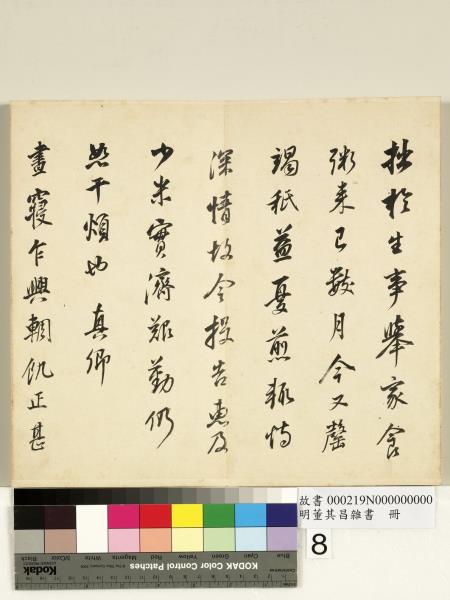 拙於生事舉家食
粥來已數月今又罄
竭秖益憂煎輒恃
深情故令投告惠及
少米實濟艱勤仍
恕干煩也 真卿
晝寢乍興輖飢正甚
故書 000219N000000000
明董其昌雜書 冊
8
Blue
Cyan
Green
Yellow
Red
Magenta
White
3/Color
Black
KODAK Color Control Patches
Kodak